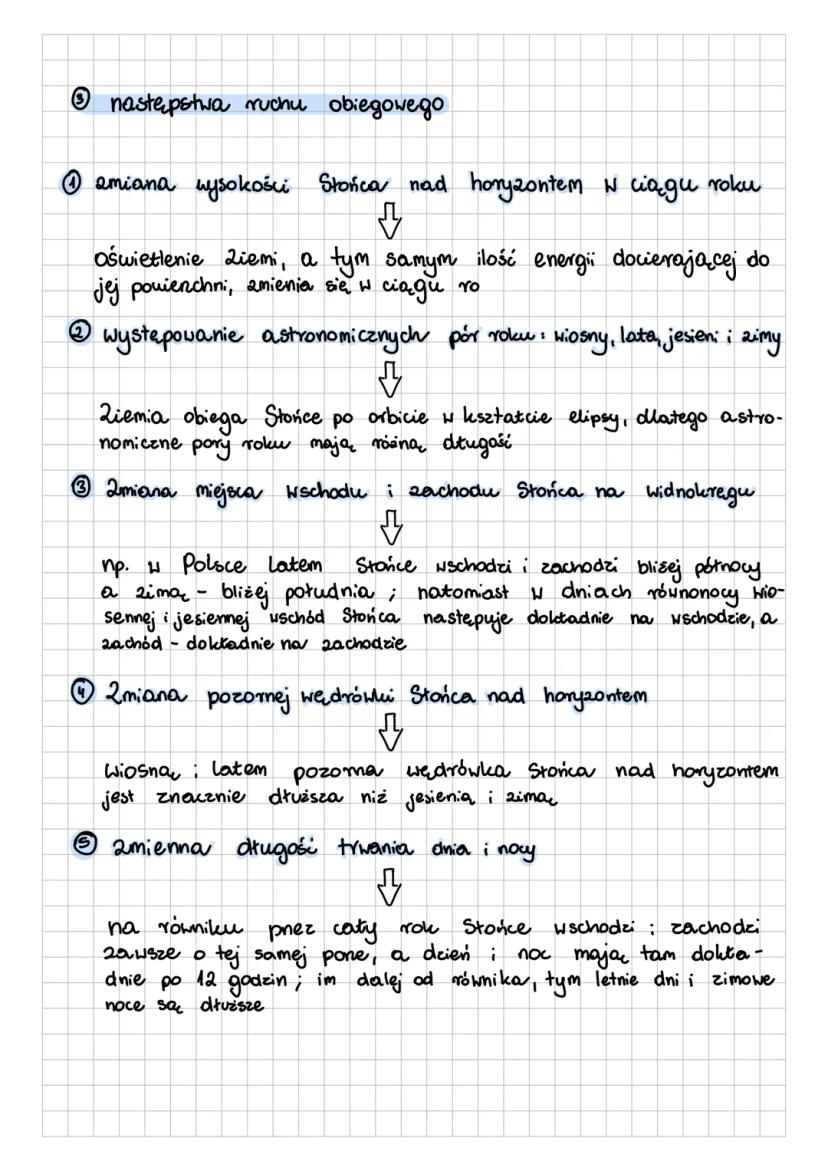 ③ następstwa ruchu obiegowego
① zmiana wysokości Słońca nad horyzontem w ciągu roku
oświetlenie Ziemi, a tym samym ilość energii docierającej do
jej powierzchni, zmienia się w ciągu ro
② występowanie astronomicznych pór roku: wiosny, lata, jesieni i zimy
Ziemia obiega Słońce po orbicie w kształcie elipsy, dlatego astro-
nomiczne pory roku mają różną długość
③ Zmiana miejsca wschodu i zachodu Słońca na widnokręgu
np. w Polsce latem Słońce wschodzi i zachodzi bliżej północy
a zimą - bliżej południa; natomiast w dniach równonocy wio-
sennej i jesiennej wschód Słońca następuje dokładnie na wschodzie, a
zachód - dokładnie na zachodzie
④ Zmiana pozornej wędrówki Słońca nad horyzontem
wiosną i latem pozorna wędrówka Słońca nad horyzontem
jest znacznie dłuższa niż jesienią i zimą
⑤ zmienna długość trwania dnia i nocy
na równiku przez cały rok Słońce wschodzi i zachodzi
zawsze o tej samej porze, a dzień i noc mają tam dokła-
dnie po 12 godzin; im dalej od równika, tym letnie dni i zimowe
noce są dłuższe